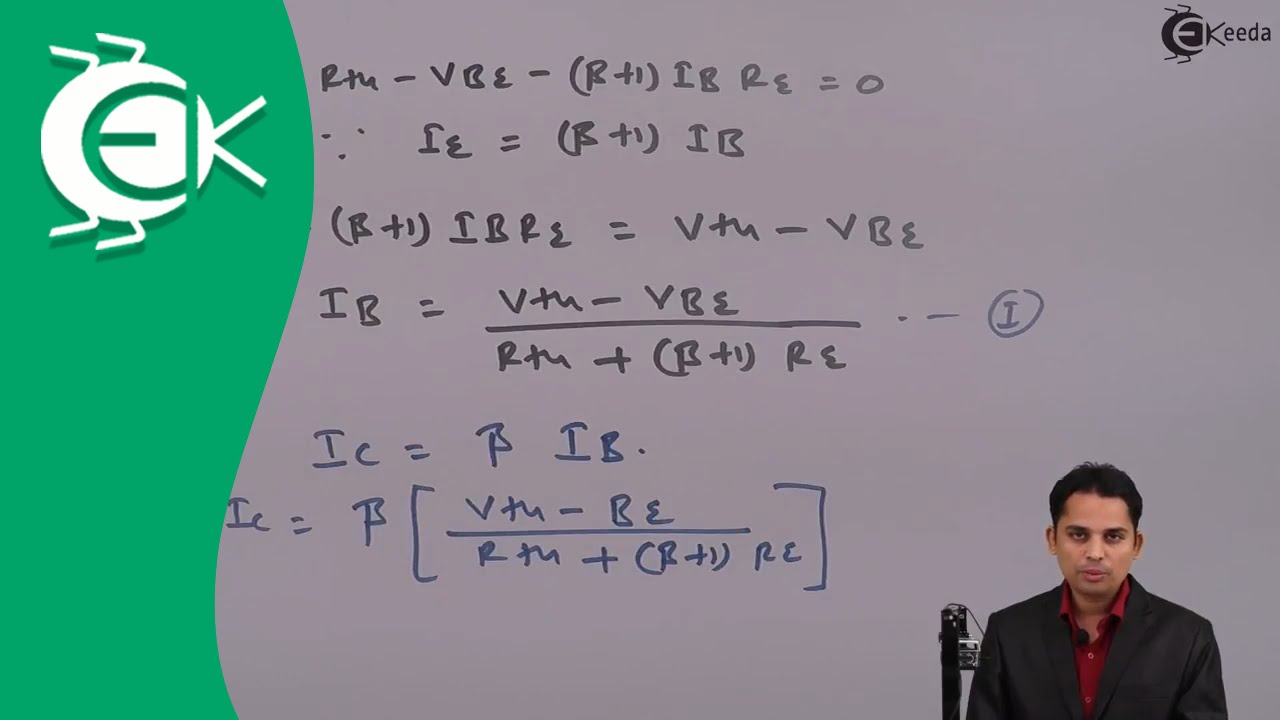 EKeeda
EK
Rth - VBE - (β+1) IB RE = 0
∵ IE = (β+1) IB
(β+1) IB RE = Vth - VBE
IB = Vth - VBE / Rth + (β+1) RE ·- (I)
IC = β IB.
IC = β [ Vth - BE / Rth + (β+1) RE ]